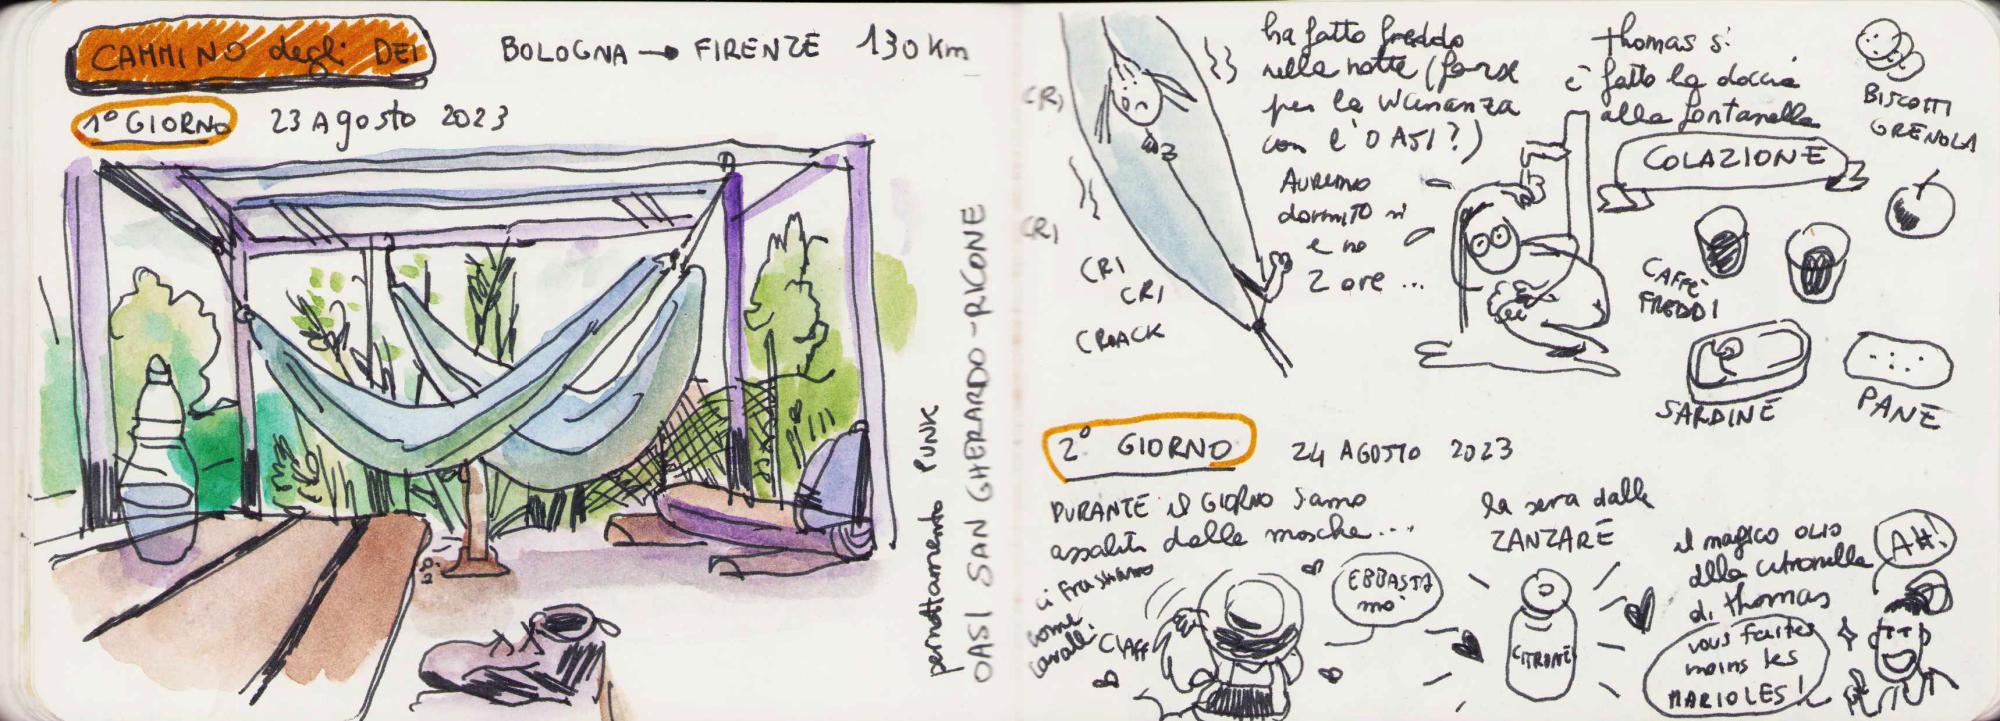 CAMMINO degli DEI
BOLOGNA → FIRENZE 130 Km
1° GIORNO 23 Agosto 2023
pernottamento PUNK
OASI SAN GHERARDO - RICONE
ha fatto freddo
nella notte (forse
per la vicinanza
con l'OASI?)
AVREMO
dormito sì
e no
2 ore ...
CRI
CRI
CRI
CRI
CROACK
Thomas si
è fatto la doccia
alla fontanella
COLAZIONE
BISCOTTI
GRENOLA
CAFFÈ
FREDDI
SARDINE
PANE
2° GIORNO 24 AGOSTO 2023
DURANTE il GIORNO siamo
assaliti dalle mosche...
ci frustiamo
come
cavalli
CLAFF
EBBASTA
mo'
la sera dalle
ZANZARE
CITRONE
il magico OLIO
alla citronella
di Thomas
AH!
vous faites
moins les
MARIOLES!